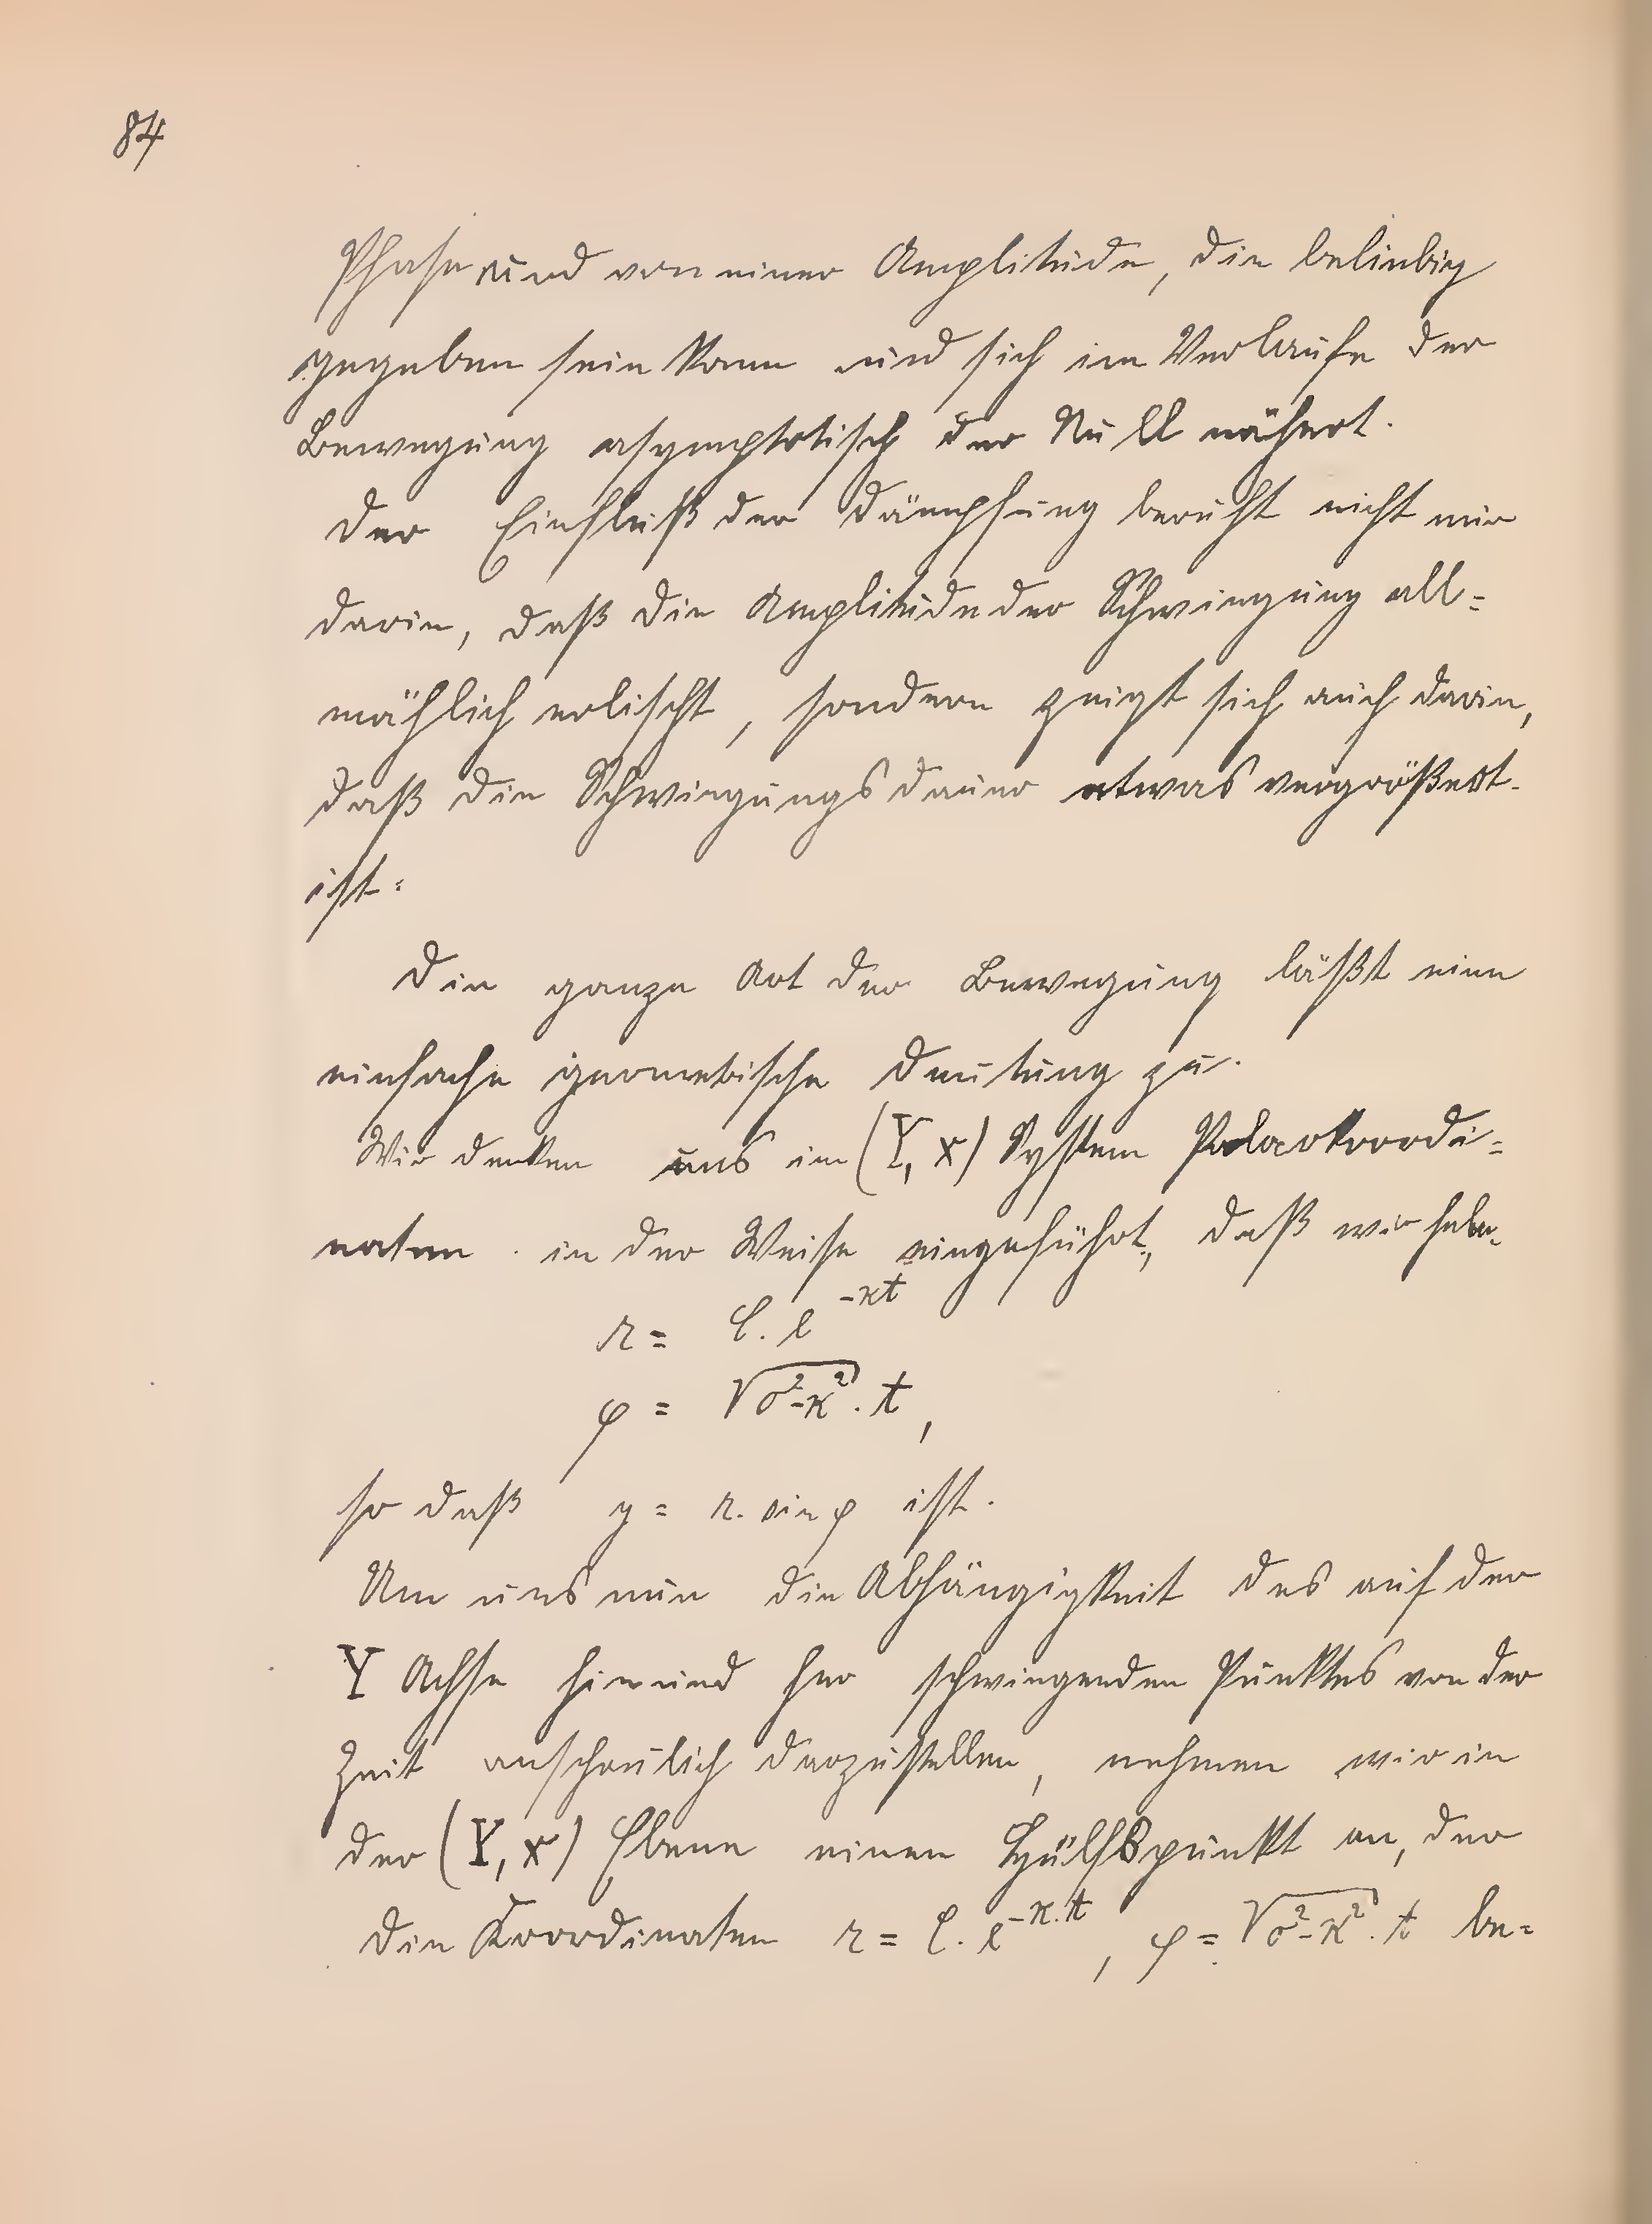 84
Phase und von einer Amplitude, die beliebig
gegeben sein kann und sich im Verlaufe der
Bewegung asymptotisch der Null nähert.
Der Einfluß der Dämpfung beruht nicht nur
darin, daß die Amplitude der Schwingung all=
mählich erlischt, sondern zeigt sich auch darin,
daß die Schwingungsdauer etwas vergrößert
ist.
Die ganze Art der Bewegung läßt eine
einfache geometrische Deutung zu.
Wir denken uns im (Y, x) System Polarkoordi=
naten in der Weise eingeführt, daß wir haben
r = C. e^{-κt}
φ = √(σ²-κ²) . t,
so daß y = r. sin φ ist.
Um uns nun die Abhängigkeit des auf der
Y Achse hin und her schwingenden Punktes von der
Zeit anschaulich darzustellen, nehmen wir in
der (Y, x) Ebene einen Hülfspunkt an, der
die Koordinaten r = C. e^{-κ.t}, φ = √(σ²-κ²) . t be=